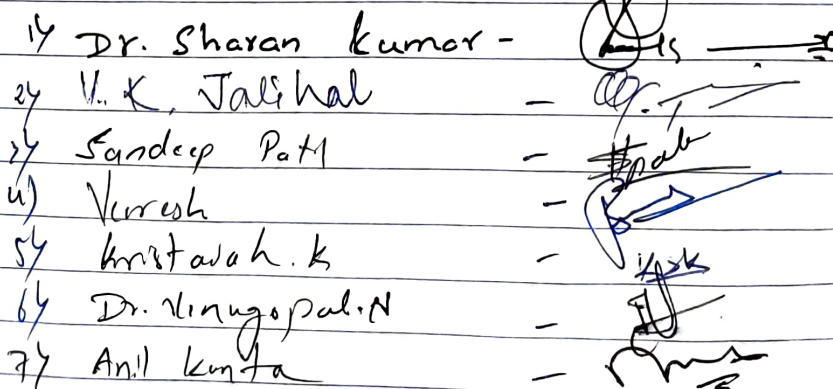 1) Dr. Sharan Kumar -
2) V. K. Jalihal -
3) Sandeep Patil -
4) Veeresh -
5) Kristavah. K -
6) Dr. Venugopal. N -
7) Anil Kunta -